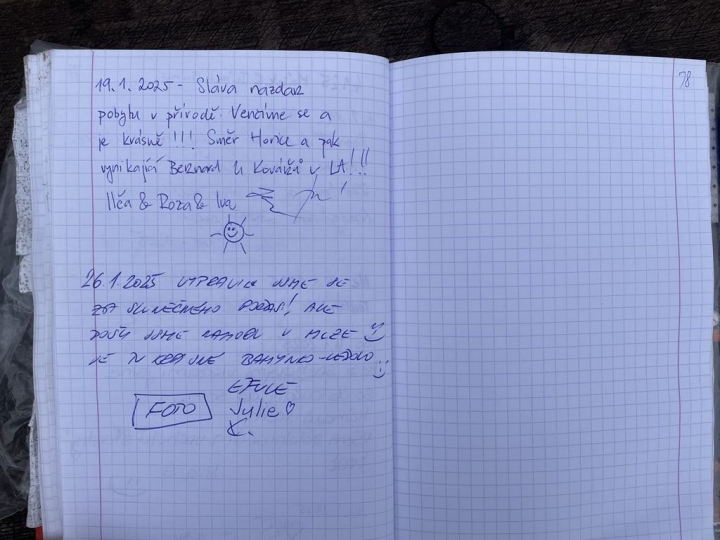 78
19.1.2025 - Sláva nazdar
pobytu v přírodě. Venčíme se a
je krásně!!! Směr Hořice a pak
vynikající Bernard u Kovářů v LA!!!
Ilča & Roza & Iva
26.1.2025 VYPRAVILI JSME SE
ZA SLUNEČNÉHO POČASÍ, ALE
DOŠLI JSME NAHORU V MLZE
JE TU KRÁSNĚ BAHYNKO-LEDOVO
Julie
K.
FOTO